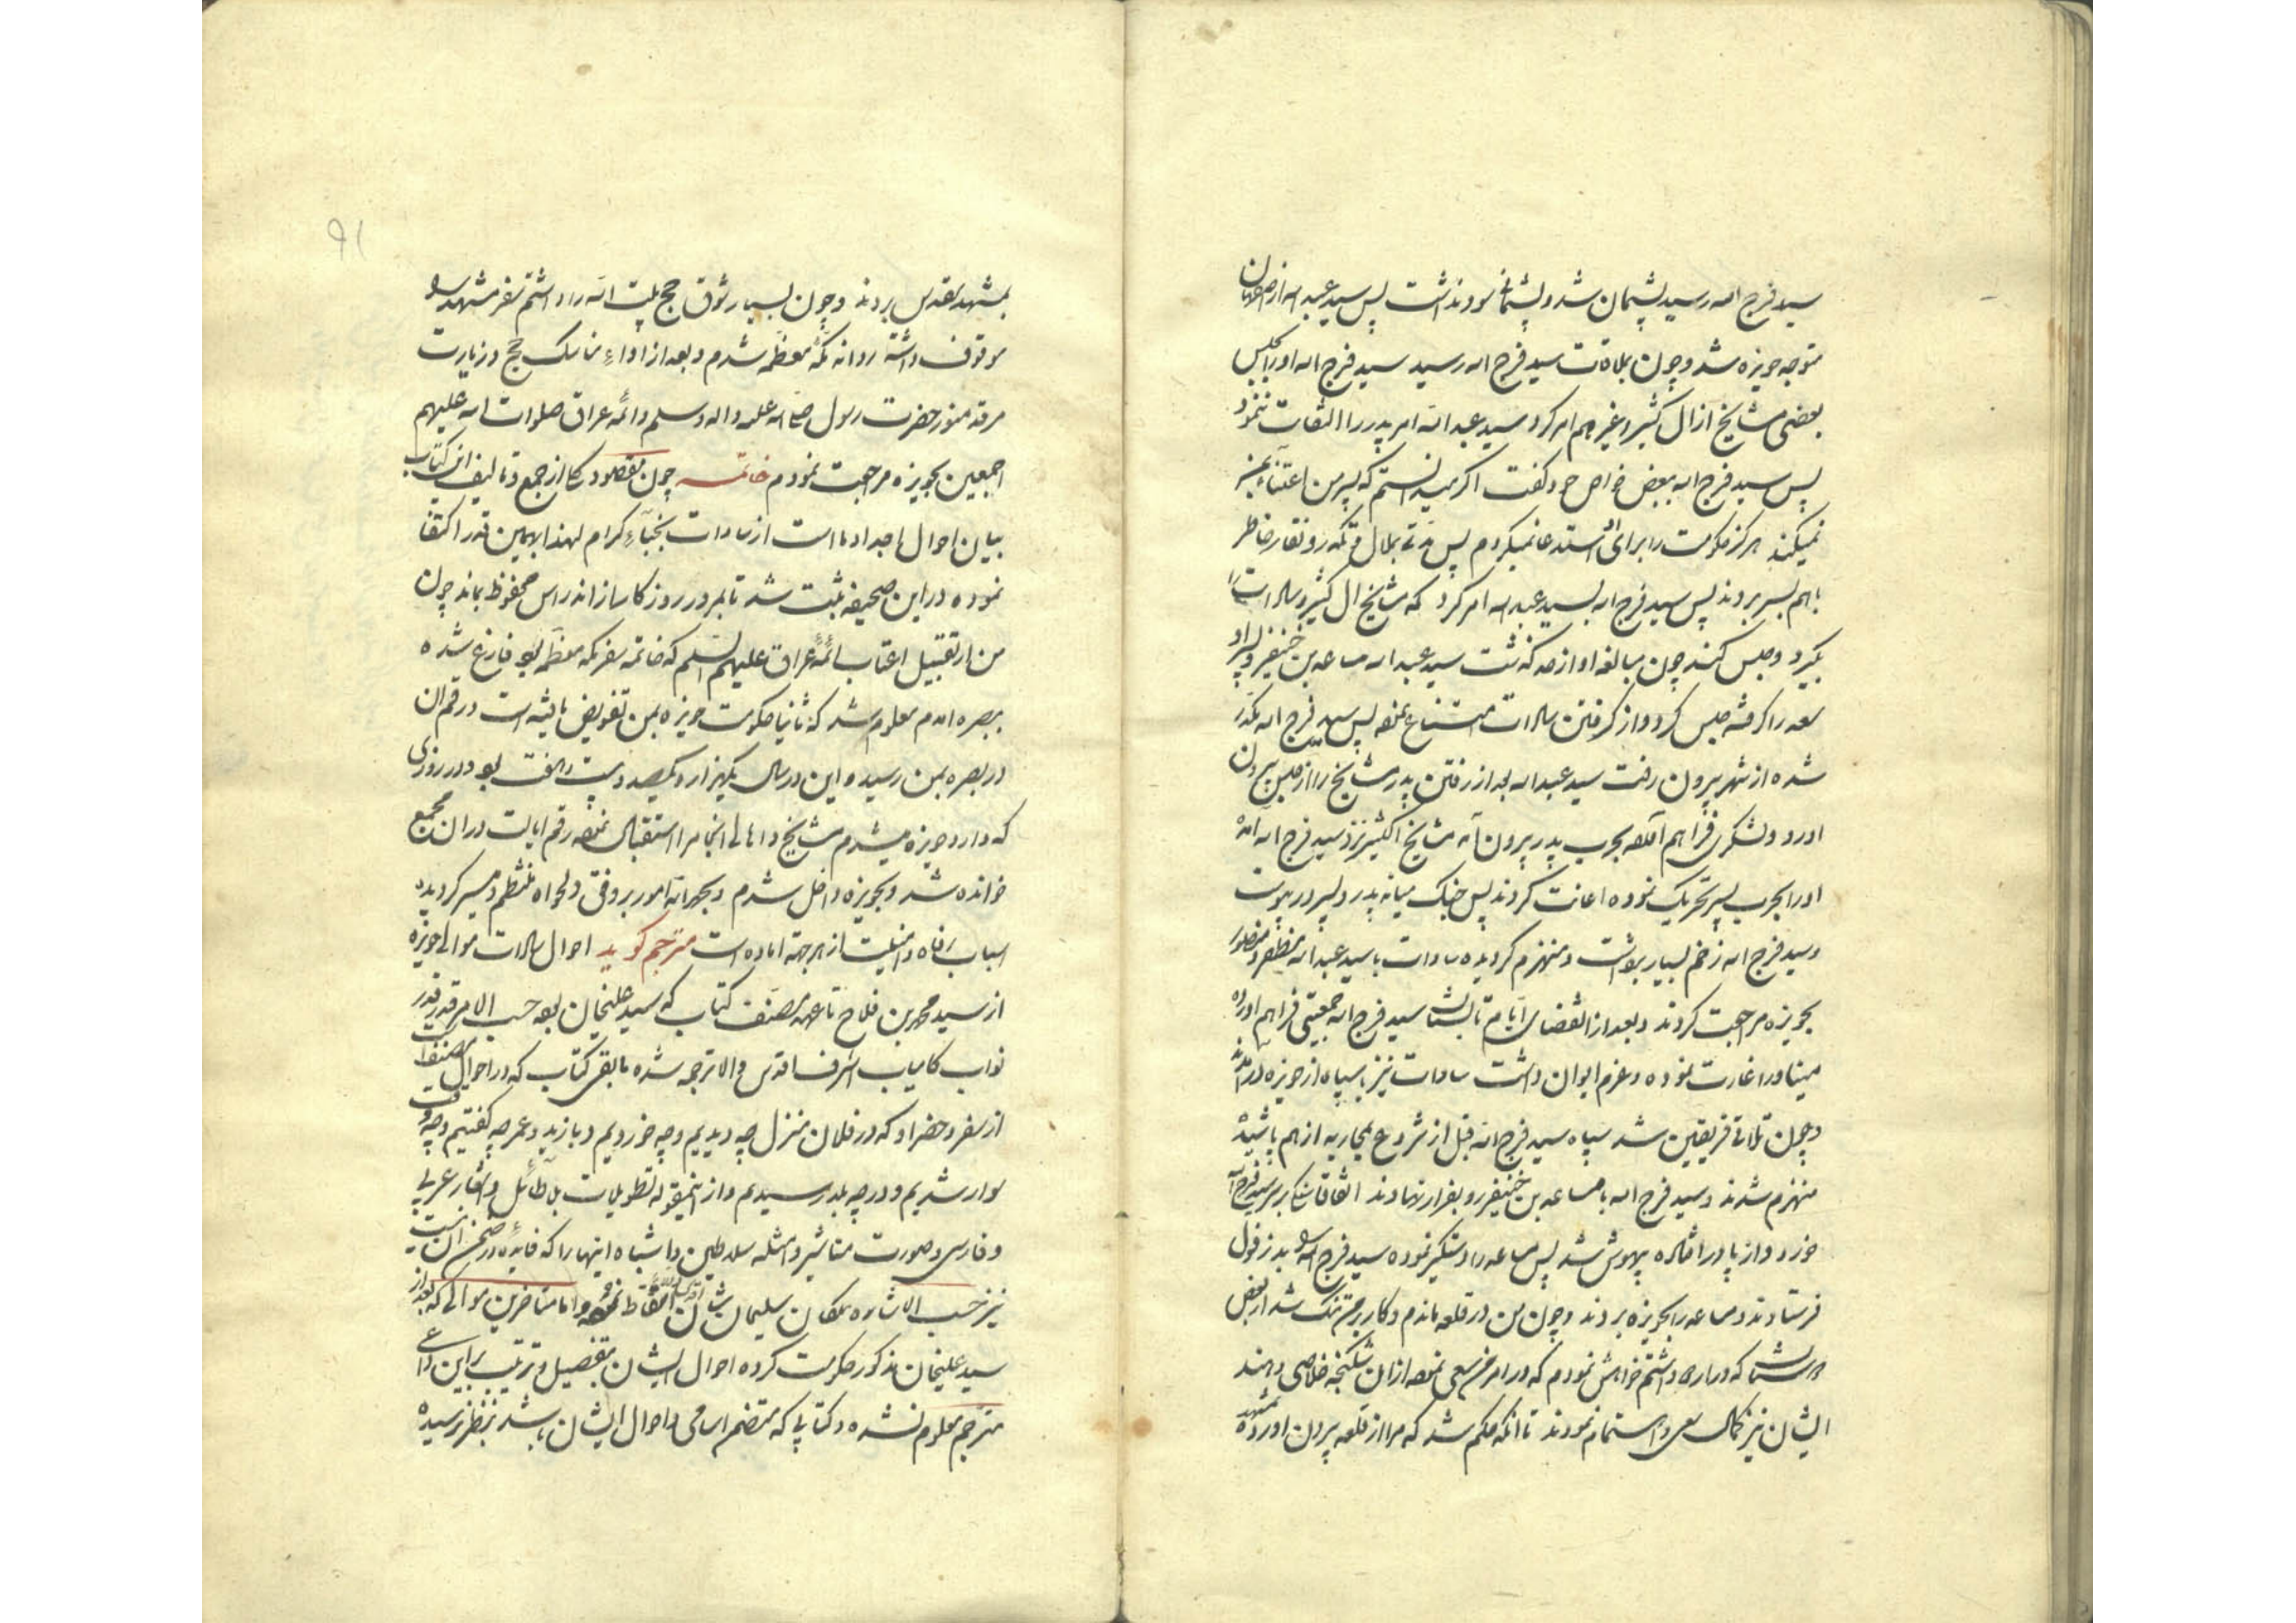 سید فرج اله رسید پشیمان شد و پشیمانی سود نداشت پس سید عبد اله از اصفهان
متوجه حویزه شد و چون بملاقات سید فرج اله رسید سید فرج اله او را بحبس
بعضی مشایخ از ال کثیر و غیرهم امر کرد سید عبد اله امر پدر را التفات ننمود
پس سید فرج اله ببعض خواص خود گفت اگر میدانستم که پسر من اعتناء بمن
نمیکند هرگز حکومت را برای او استدعا نمیکردم پس مدتی بملال و تکدر و نقار خاطر
باهم بسر بردند پس سید فرج اله بسید عبد اله امر کرد که مشایخ ال کثیر و سادات را
بگیرد و حبس کند چون مبالغه او از حد گذشت سید عبد اله مساعد بن خنیفر و پسر او
سعد را گرفته حبس کرد و از گرفتن سادات امتناع نمود پس سید فرج اله مکدر
شده از شهر بیرون رفت سید عبد اله بعد از رفتن پدر مشایخ را از حبس بیرون
اورد و لشکری فراهم آورده بحرب پدر بیرون آمد مشایخ اکثیر نزد سید فرج اله امده
او را بحرب پسر تحریک نموده اعانت کردند پس جنگ میانه پدر و پسر در پیوست
و سید فرج اله زخم بسیار برداشت و منهزم گردیده سادات با سید عبد اله مظفر و منصور
بحویزه مراجعت کردند و بعد از انقضای ایام تابستان سید فرج اله جمعیتی فراهم اورده
میناو را غارت نموده و عزم ایوان داشت سادات نیز با سپاه از حویزه در آمدند
و چون تلاقی فریقین شد سپاه سید فرج اله قبل از شروع بمحاربه از هم پاشیده
منهزم شدند و سید فرج اله با مساعد بن خنیفر رو بفرار نهادند اتفاقا سنگی بر سر سید فرج اله
خورد و از پا در افتاده بیهوش شد پس مساعد را دستگیر نموده سید فرج اله را بدزفول
فرستادند و مساعد را بحویزه بردند و چون من در قلعه ماندم و کار بر من تنگ شد از بعض
دوستان که در اردو داشتم خواهش نمودم که در امر من سعی نموده از ان شکنجه خلاصی دهند
ایشان نیز کمال سعی و اهتمام نمودند تا انکه حکم شد که مرا از قلعه بیرون اورده بمشهد
۹۱
بمشهد مقدس بردند و چون بسیار شوق حج بیت اله را داشتم سفر مشهد را
موقوف داشته روانه مکه معظمه شدم و بعد از اداء مناسک حج و زیارت
مرقد منور حضرت رسول صلی اله علیه واله وسلم و ائمه عراق صلوات اله علیهم
اجمعین بحویزه مراجعت نمودم خاتمه چون مقصود کلی از جمع و تالیف این کتاب
بیان احوال اجداد ما است از سادات نجباء کرام لهذا بر همین قدر اکتفا
نموده در این صحیفه ثبت شد تا بمرور روزگار از اندراس محفوظ بماند چون
من از تقبیل اعتاب ائمه عراق علیهم السلم که خاتمه سفر مکه معظمه بود فارغ شده
ببصره امدم معلوم شد که ثانیا حکومت حویزه بمن تفویض یافته است و رقم ان
در بصره بمن رسید و این در سال یکهزار و یکصد و بیست و هفت بود و در روزی
که وارد حویزه میشدم مشایخ و اهالی انجا مرا استقبال نموده رقم ایالت در ان مجمع
خوانده شد و بحویزه داخل شدم و بحمد اله امور بر وفق دلخواه منتظم و میسر گردیده
اسباب رفاه و امنیت از هر جهة اماده است مترجم گوید احوال سادات موالی حویزه
از سید محمد بن فلاح تا عهد مصنف کتاب که سید علیخان بوده حسب الامر قدر قدرت
نواب کامیاب اشرف اقدس والا ترجمه شده ما بقی کتاب که در احوال مصنف است
از سفر و حضر او که در فلان منزل چه دیدیم و چه خوردیم و با زید و عمر چه گفتیم و چه وقت
سوار شدیم و در چه بلد رسیدیم و از اینمقوله تطویلات بلا طائل و اشعار عربی
و فارسی و صورت مناشیر و امثله سلاطین و اشباه اینها را که فایده در ضمن ان نیست
نیز حسب الاشاره ملکان سلیمان شان اقدس والا اسقاط نموده و اما متاخرین موالی که بعد از
سید علیخان مذکور حکومت کرده احوال ایشان بتفصیل و ترتیب بر این داعی
مترجم معلوم نشده و کتابی که متضمن اسامی و احوال ایشان باشد بنظر نرسیده